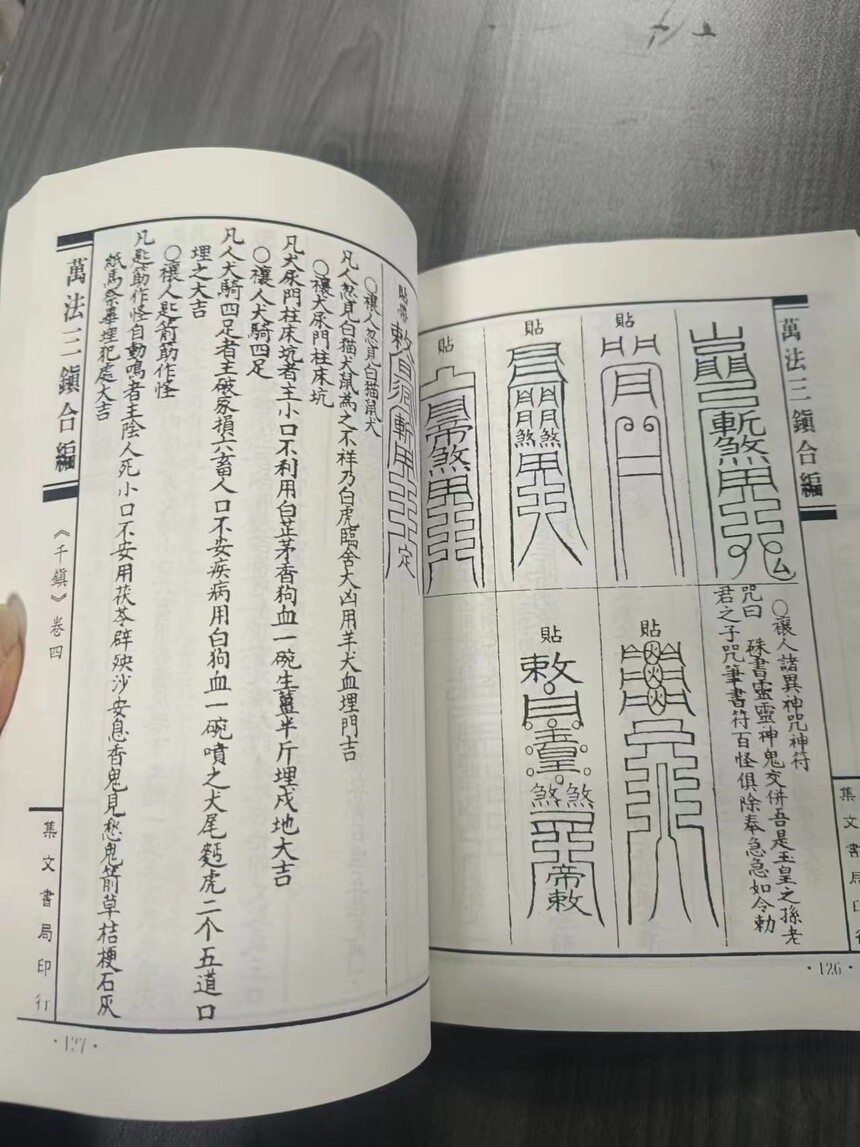 萬法三鎮合編
集文書局印行
·126·
斬煞
○禳人諸異神咒神符
咒曰　硃書靈靈神鬼交併吾是玉皇之孫老
君之子咒筆書符百怪俱除奉急急如令勅
貼
貼
煞煞
貼
帝煞
貼
火火火
貼
敕
煞煞
帝敕
貼帶
敕
斬
定
○禳人忽見白猫鼠犬
凡人忽見白猫犬鼠為之不祥乃白虎臨舍大凶用羊犬血埋門吉
○禳犬尿門柱床坑
凡犬尿門柱床坑者主小口不利用白芷茅香狗血一碗生薑半斤埋戌地大吉
○禳人犬騎四足
凡人犬騎四足者主破家損六畜人口不安疾病用白狗血一碗噴之犬尾麪虎二个五道口
埋之大吉
○禳人匙箭筋作怪
凡匙筋作怪自動鳴者主陰人死小口不安用茯苓辟殃沙安息香鬼見愁鬼箭草桔梗石灰
紙馬祭畢埋犯處大吉
萬法三鎮合編
《千鎮》卷四
集文書局印行
·127·